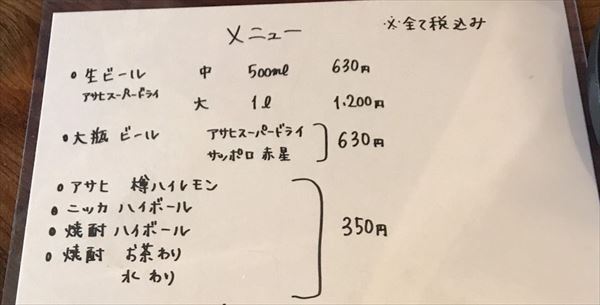 メニュー ※全て税込み
• 生ビール 中 500ml 630円
アサヒスーパードライ 大 1l 1,200円
• 大瓶 ビール アサヒスーパードライ 630円
サッポロ 赤星
• アサヒ 樽ハイレモン
• ニッカ ハイボール
• 焼酎 ハイボール 350円
• 焼酎 お茶わり
水わり